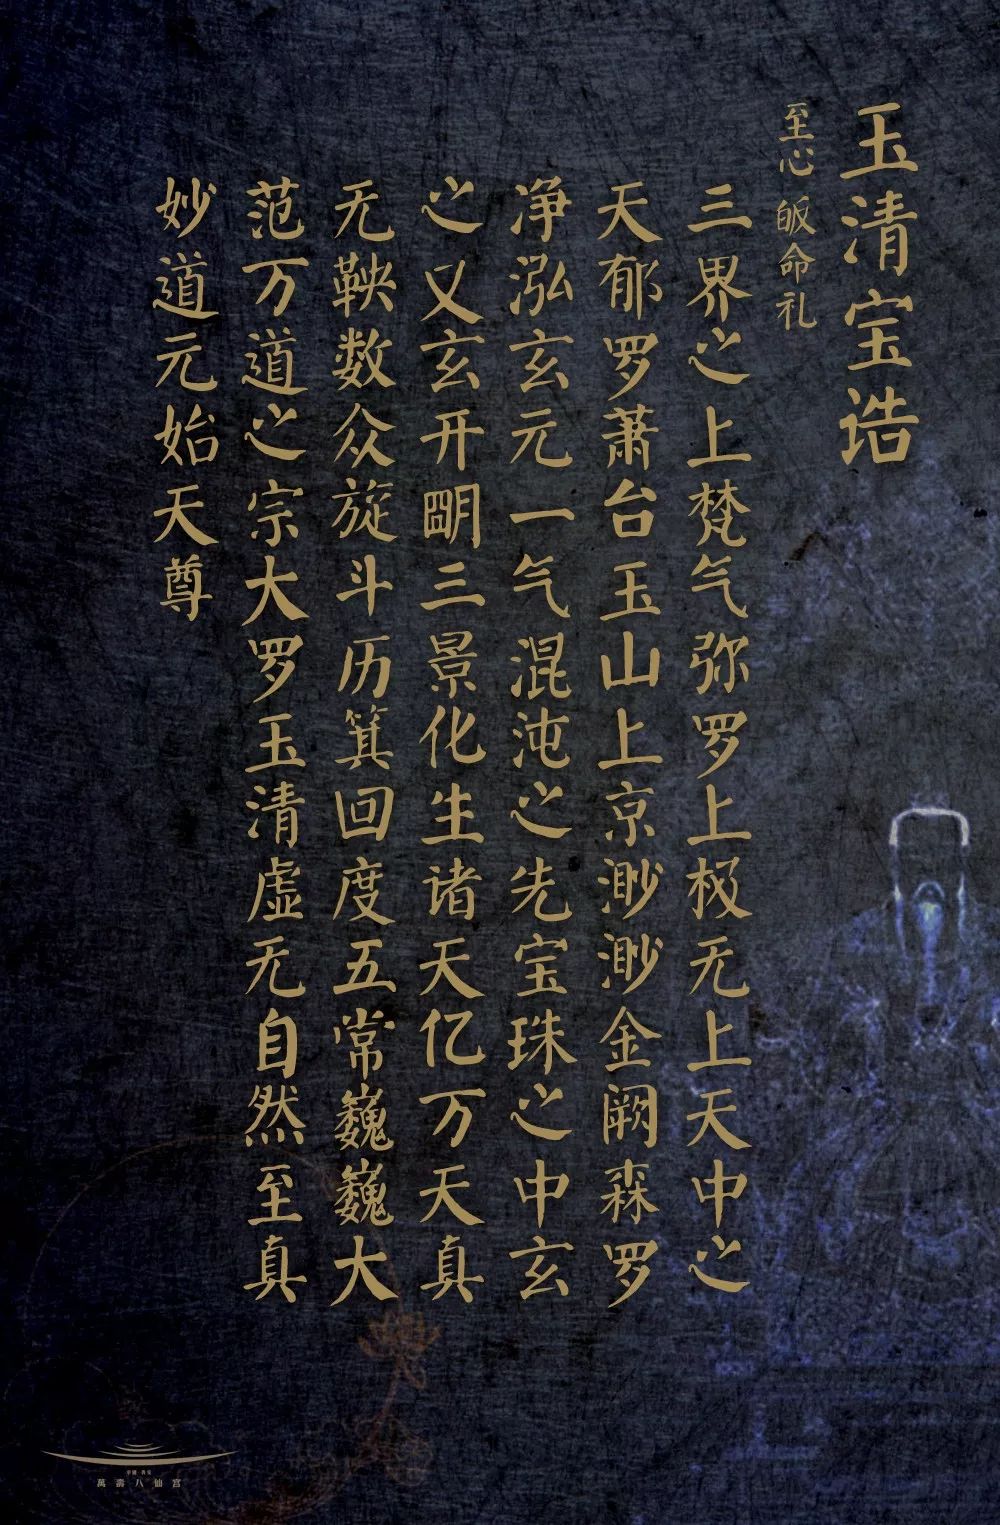 玉清宝诰
至心皈命礼
三界之上梵气弥罗上极无上天中之
天郁罗萧台玉山上京渺渺金阙森罗
净泓玄元一气混沌之先宝珠之中玄
之又玄开朙三景化生诸天亿万天真
无鞅数众旋斗历箕回度五常巍巍大
范万道之宗大罗玉清虚无自然至真
妙道元始天尊
萬壽八仙宫